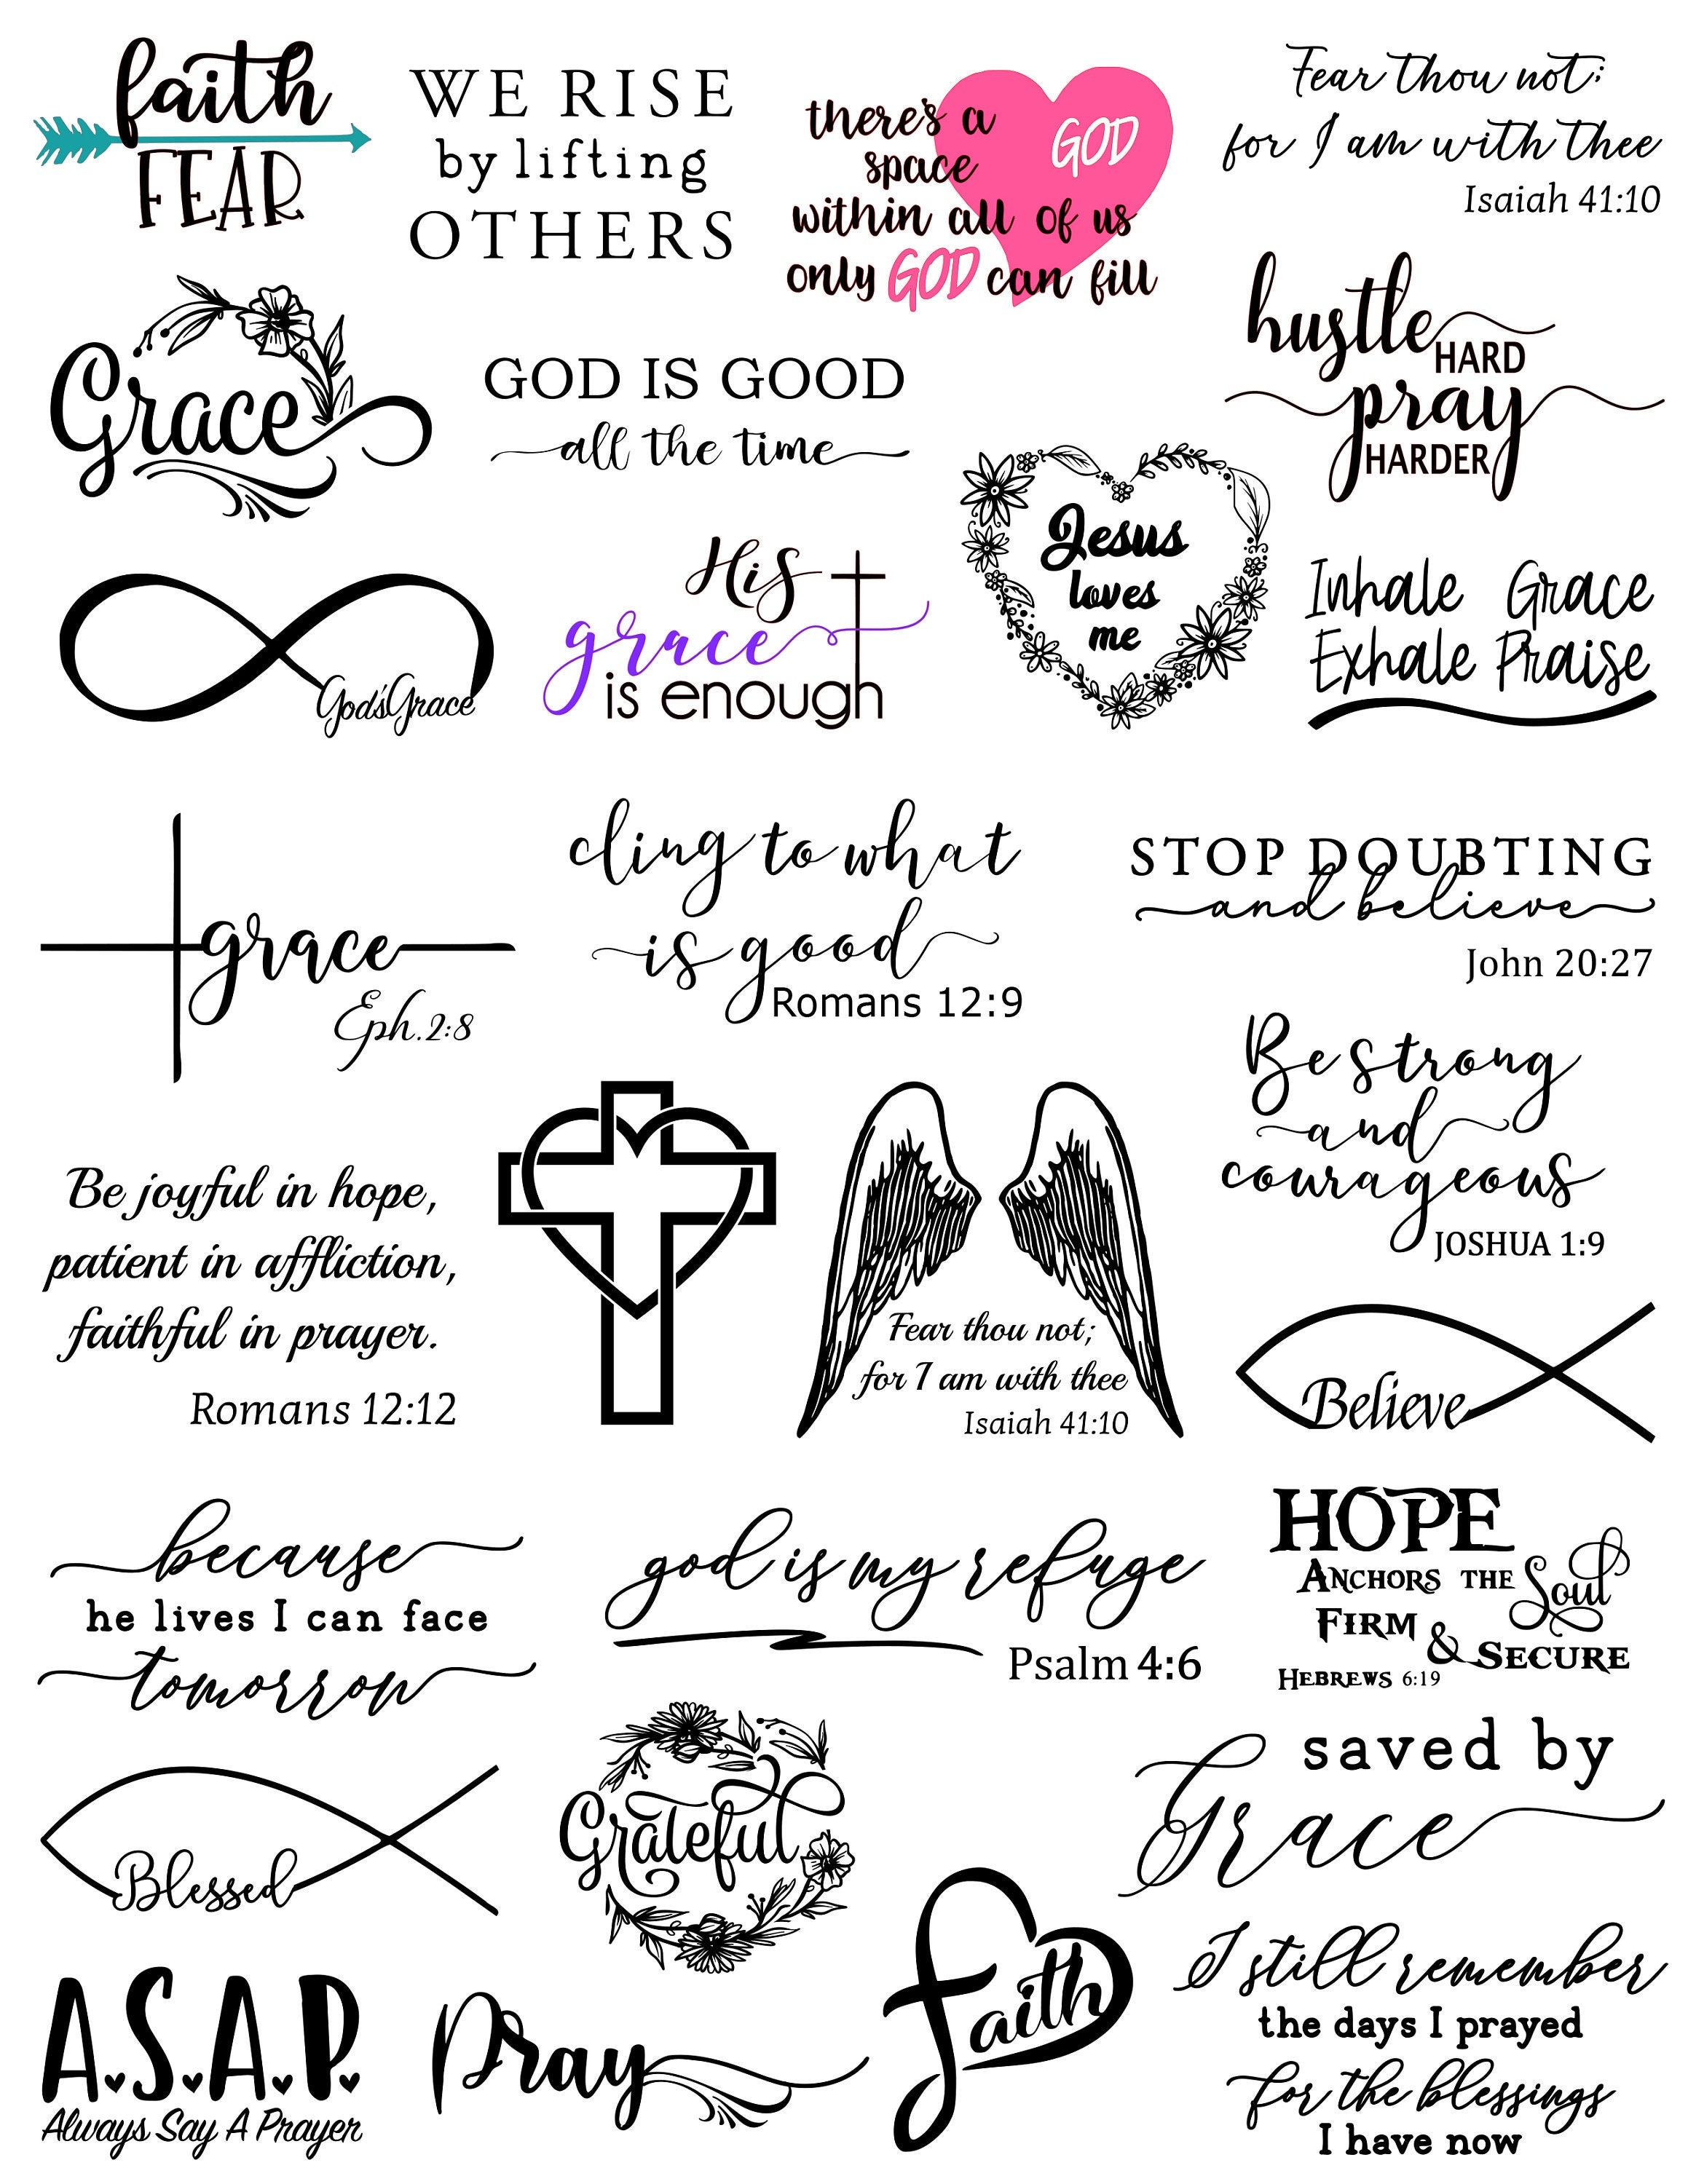 faith
FEAR
WE RISE
by lifting
OTHERS
there's a
space
GOD
within all of us
only GOD can fill
Fear thou not;
for I am with thee
Isaiah 41:10
Grace
GOD IS GOOD
all the time
hustle
HARD
pray
HARDER
God's Grace
His
grace
is enough
Jesus
loves
me
Inhale Grace
Exhale Praise
grace
Eph.2:8
cling to what
is good
Romans 12:9
STOP DOUBTING
and believe
John 20:27
Be strong
and
courageous
JOSHUA 1:9
Be joyful in hope,
patient in affliction,
faithful in prayer.
Romans 12:12
Fear thou not;
for I am with thee
Isaiah 41:10
Believe
because
he lives I can face
tomorrow
god is my refuge
Psalm 4:6
HOPE
ANCHORS THE Soul
FIRM
& SECURE
HEBREWS 6:19
Blessed
Grateful
saved by
Grace
A.S.A.P.
Always Say A Prayer
Pray
Faith
I still remember
the days I prayed
for the blessings
I have now